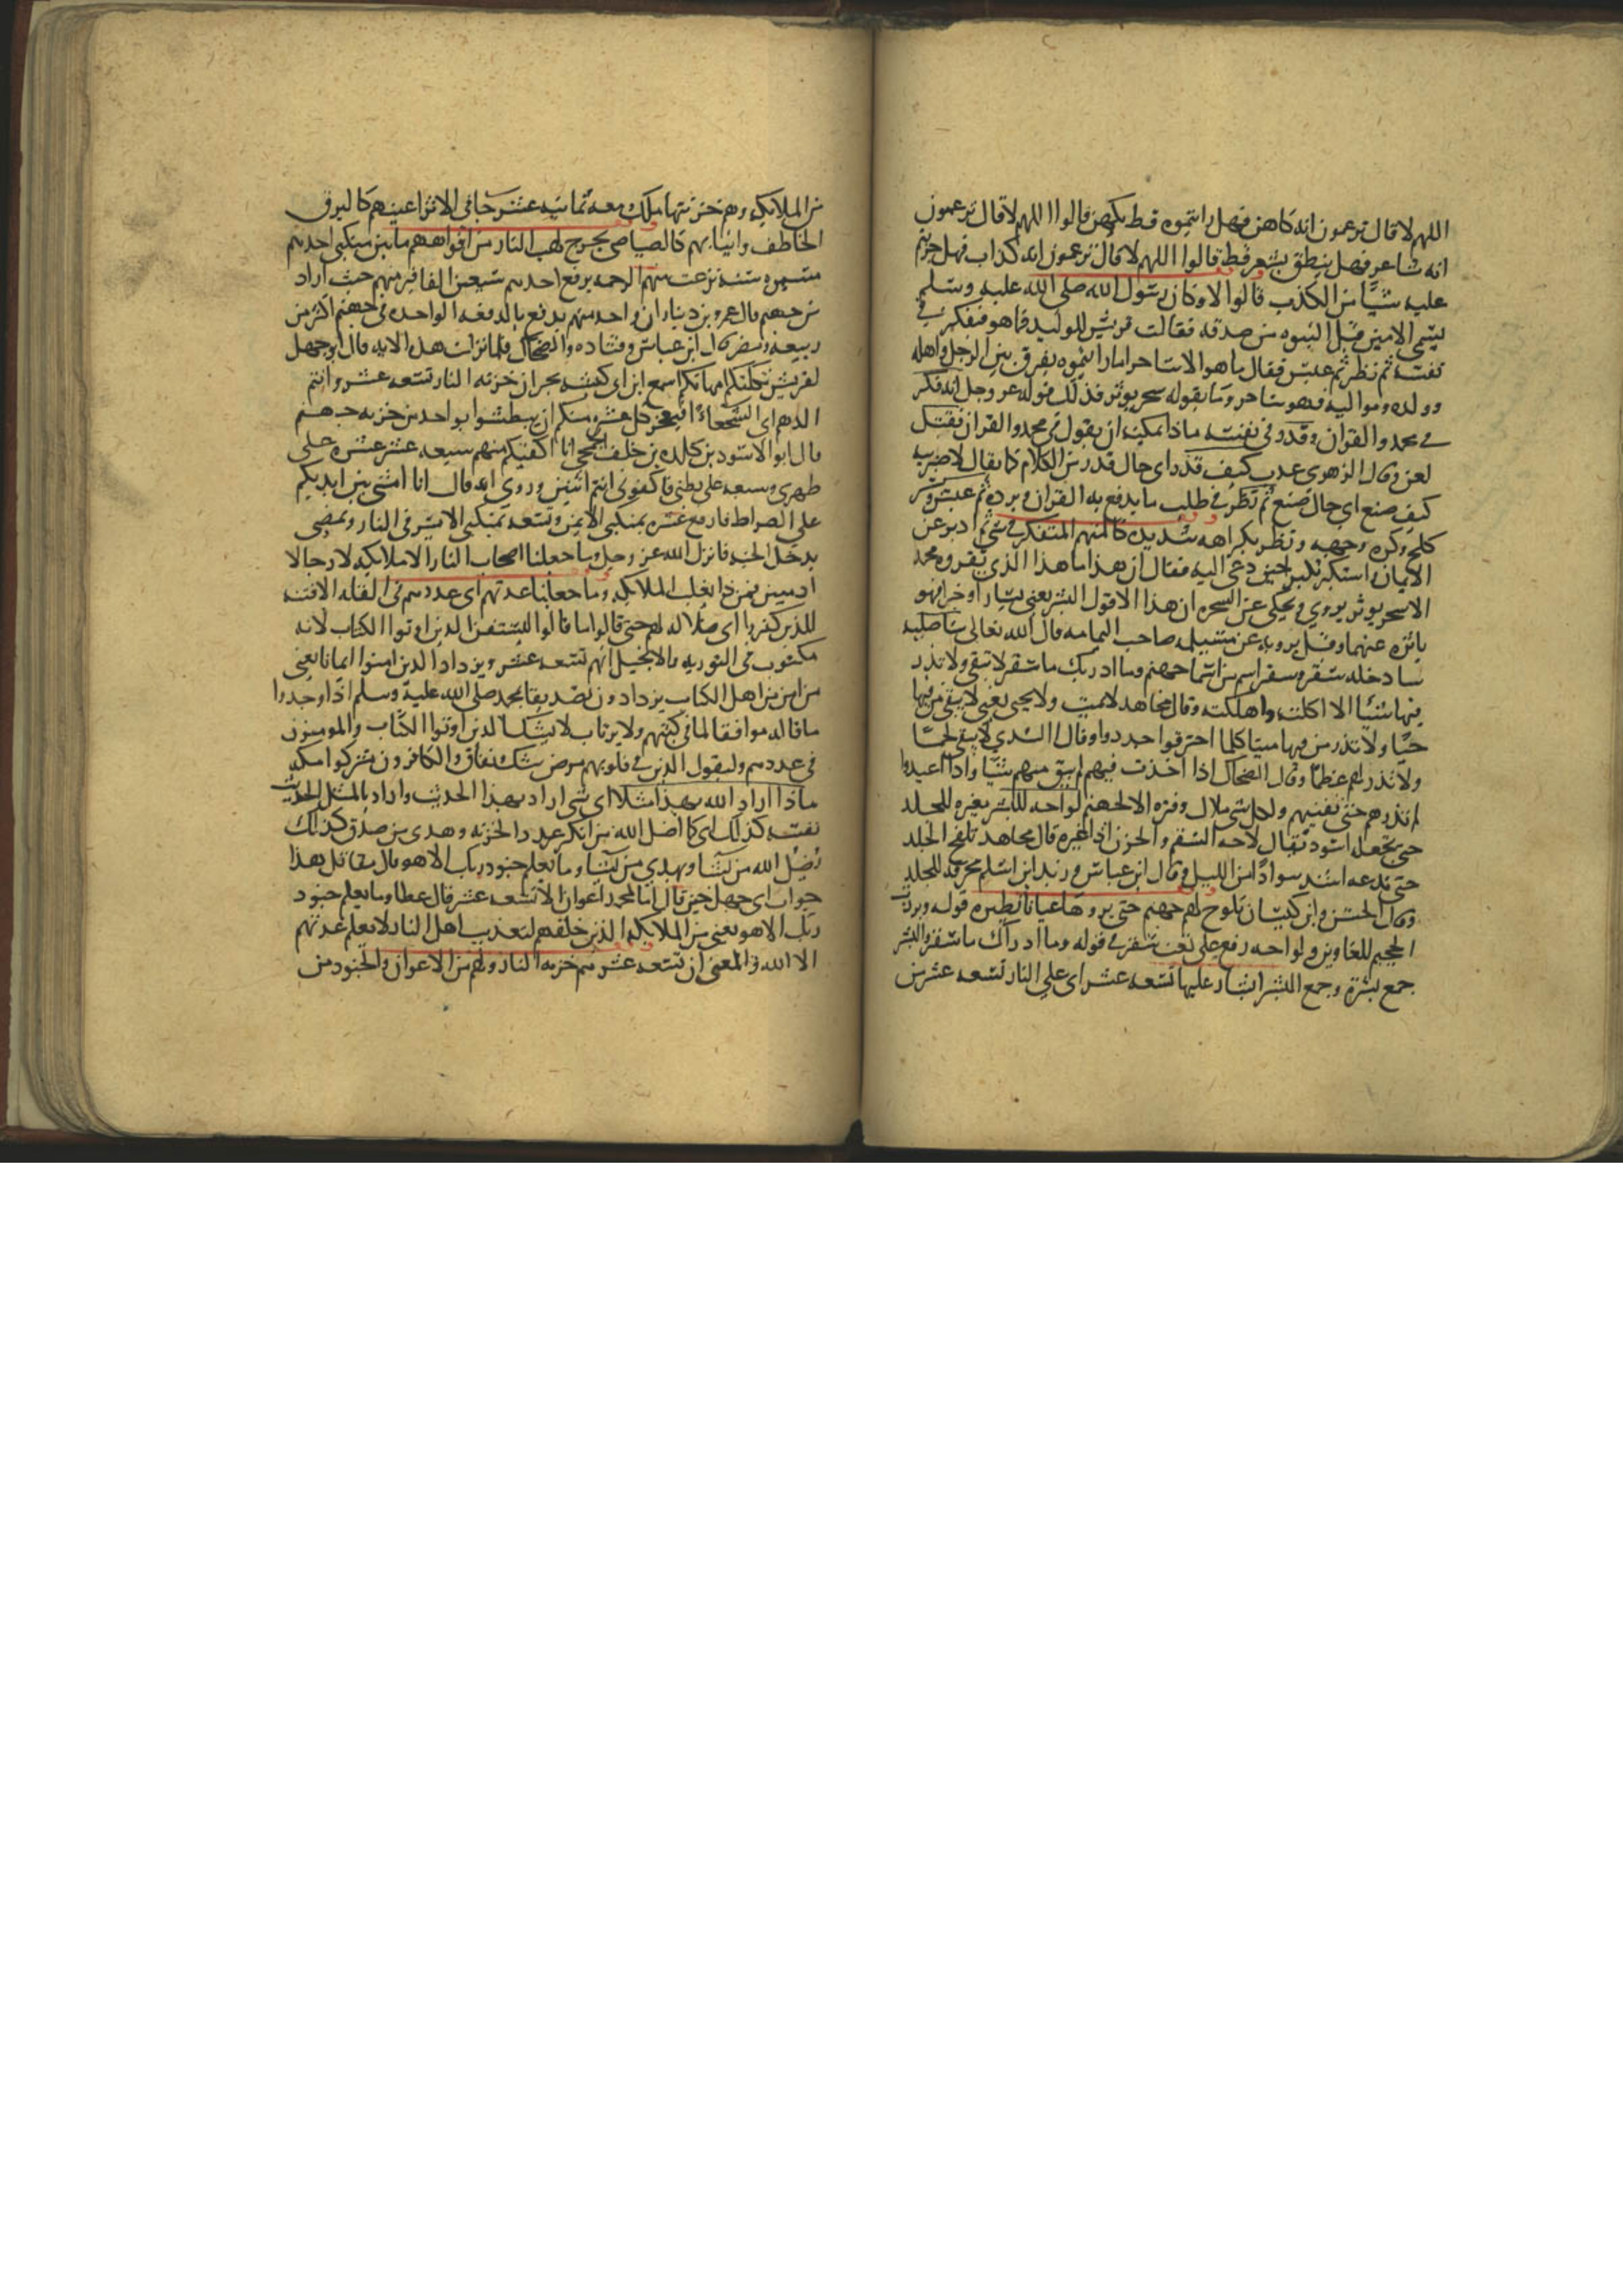 اللهم لا قال تزعمون انه كاهن فهل رايتموه قط يكهن قالوا اللهم لا قال تزعمون
انه شاعر فهل ينطق بشعر قط قالوا اللهم لا قال تزعمون انه كذاب فهل جربتم
عليه شيا من الكذب قالوا لا وكان رسول الله صلى الله عليه وسلم
يسمى الامين قبل النبوه من صدقه فقالت قريش للوليد فما هو فتفكر في
نفسه ثم نظر ثم عبس فقال ما هو الا ساحر اما رايتموه يفرق بين الرجل واهله
وولده ومواليه فهو ساحر وما يقوله سحر يوثر فذلك قوله عز وجل انه فكر
في محمد والقران وقدر في نفسه ماذا يمكنه ان يقول في محمد والقران فقتل
لعن وقال الزهري عذب كيف قدر اي حال قدر من الكلام كما يقال لاضربنه
كيف صنع اي حال صنع ثم نظر في طلب ما يدفع به القران ويرده ثم عبس وبسر
كلح وكره وجهه ونظر بكراهه شديده كالمهتم المتفكر في شي ثم ادبر عن
الايمان استكبر تكبر حين دعي اليه فقال ان هذا ما هذا الذي يقروه محمد
الا سحر يوثر يروي ويحكى عن السحره ان هذا الا قول البشر يعني يسارا وخبرا فهو
ياثره عنهما وقيل يرويه عن مسيلمه صاحب اليمامه قال الله تعالى ساصليه
سادخله سقر وسقر اسم من اسما جهنم وما ادريك ما سقر لا تبقي ولا تذر
فيها شيا الا اكلته واهلكته وقال مجاهد لا تميت ولا تحيي يعني لا تبقي من فيها
حيا ولا تذر من فيها ميتا كلما احترقوا جددوا وقال السدي لا تبقي لهم لحما
ولا تذر لهم عظما وقال الضحاك اذا اخذت فيهم لم تبق منهم شيا واذا اعيدوا
لم تذرهم حتى تفنيهم ولكل شي ملال وفتره الا لجهنم لواحه للبشر مغيره للجلد
حتى تجعله اسود يقال لاحه السقم والحزن اذا غيره قال مجاهد تلفح الجلد
حتى تدعه اشد سوادا من الليل وقال ابن عباس وزيد ابن اسلم محرقه للجلد
وقال الحسن وابن كيسان تلوح لهم جهنم حتى يروها عيانا نظيره قوله وبرزت
الجحيم للغاوين ولواحه رفع على نعت سقر في قوله وما ادراك ما سقر والبشر
جمع بشرة وجمع البشر ابشار عليها تسعه عشر اي على النار تسعه عشر من
من الملايكه وهم خزنتها ملك ومعه ثمانيه عشر جا في الاثر اعينهم كالبرق
الخاطف وانيابهم كالصياصي يخرج لهب النار من افواههم ما بين منكبي احدهم
مسيره سنه نزعت منهم الرحمه يرفع احدهم سبعين الفا فيرميهم حيث اراد
من جهنم قال عمرو بن دينار ان واحد منهم يدفع بالدفعه الواحده في جهنم اكثر من
ربيعه ومضر قال ابن عباس وقتاده والضحاك فلما نزلت هذه الايه قال ابو جهل
لقريش ثكلتكم امهاتكم اسمع ابن ابي كبشه يخبر ان خزنه النار تسعه عشر وانتم
الدهم اي الشجعاء افيعجز كل عشره منكم ان يبطشوا بواحد من خزنه جهنم
قال ابو الاسود بن كلده بن خلف الجمحي انا اكفيكم منهم سبعه عشر عشره على
ظهري وسبعه على بطني فاكفوني انتم اثنين وروي انه قال انا امشي بين ايديكم
على الصراط فادفع عشره بمنكبي الايمن وتسعه بمنكبي الايسر في النار ونمضي
ندخل الجنه فانزل الله عز وجل وما جعلنا اصحاب النار الا ملايكه لا رجالا
ادميين فمن ذا يغلب الملايكه وما جعلنا عدتهم اي عددهم في القله الا فتنه
للذين كفروا اي ضلاله لهم حتى قالوا ما قالوا ليستيقن الذين اوتوا الكتاب لانه
مكتوب في التوريه والانجيل انهم تسعه عشر ويزداد الذين امنوا ايمانا يعني
من امن من اهل الكتاب يزدادون تصديقا بمحمد صلى الله عليه وسلم اذا وجدوا
ما قاله موافقا لما في كتبهم ولا يرتاب لا يشك الذين اوتوا الكتاب والمومنون
في عددهم وليقول الذين في قلوبهم مرض شك ونفاق والكافرون مشركوا مكه
ماذا اراد الله بهذا مثلا اي شي اراد بهذا الحديث واراد بالمثل الحديث
نفسه كذلك اي كما اضل الله من انكر عدد الخزنه وهدى من صدق كذلك
يضل الله من يشا ويهدي من يشا وما يعلم جنود ربك الا هو قال مقاتل هذا
جواب ابي جهل حين قال اما لمحمد اعوان الا تسعه عشر قال عطا وما يعلم جنود
ربك الا هو يعني من الملايكه الذين خلقهم لتعذيب اهل النار لا يعلم عدتهم
الا الله والمعنى ان تسعه عشر هم خزنه النار ولهم من الاعوان والجنود من